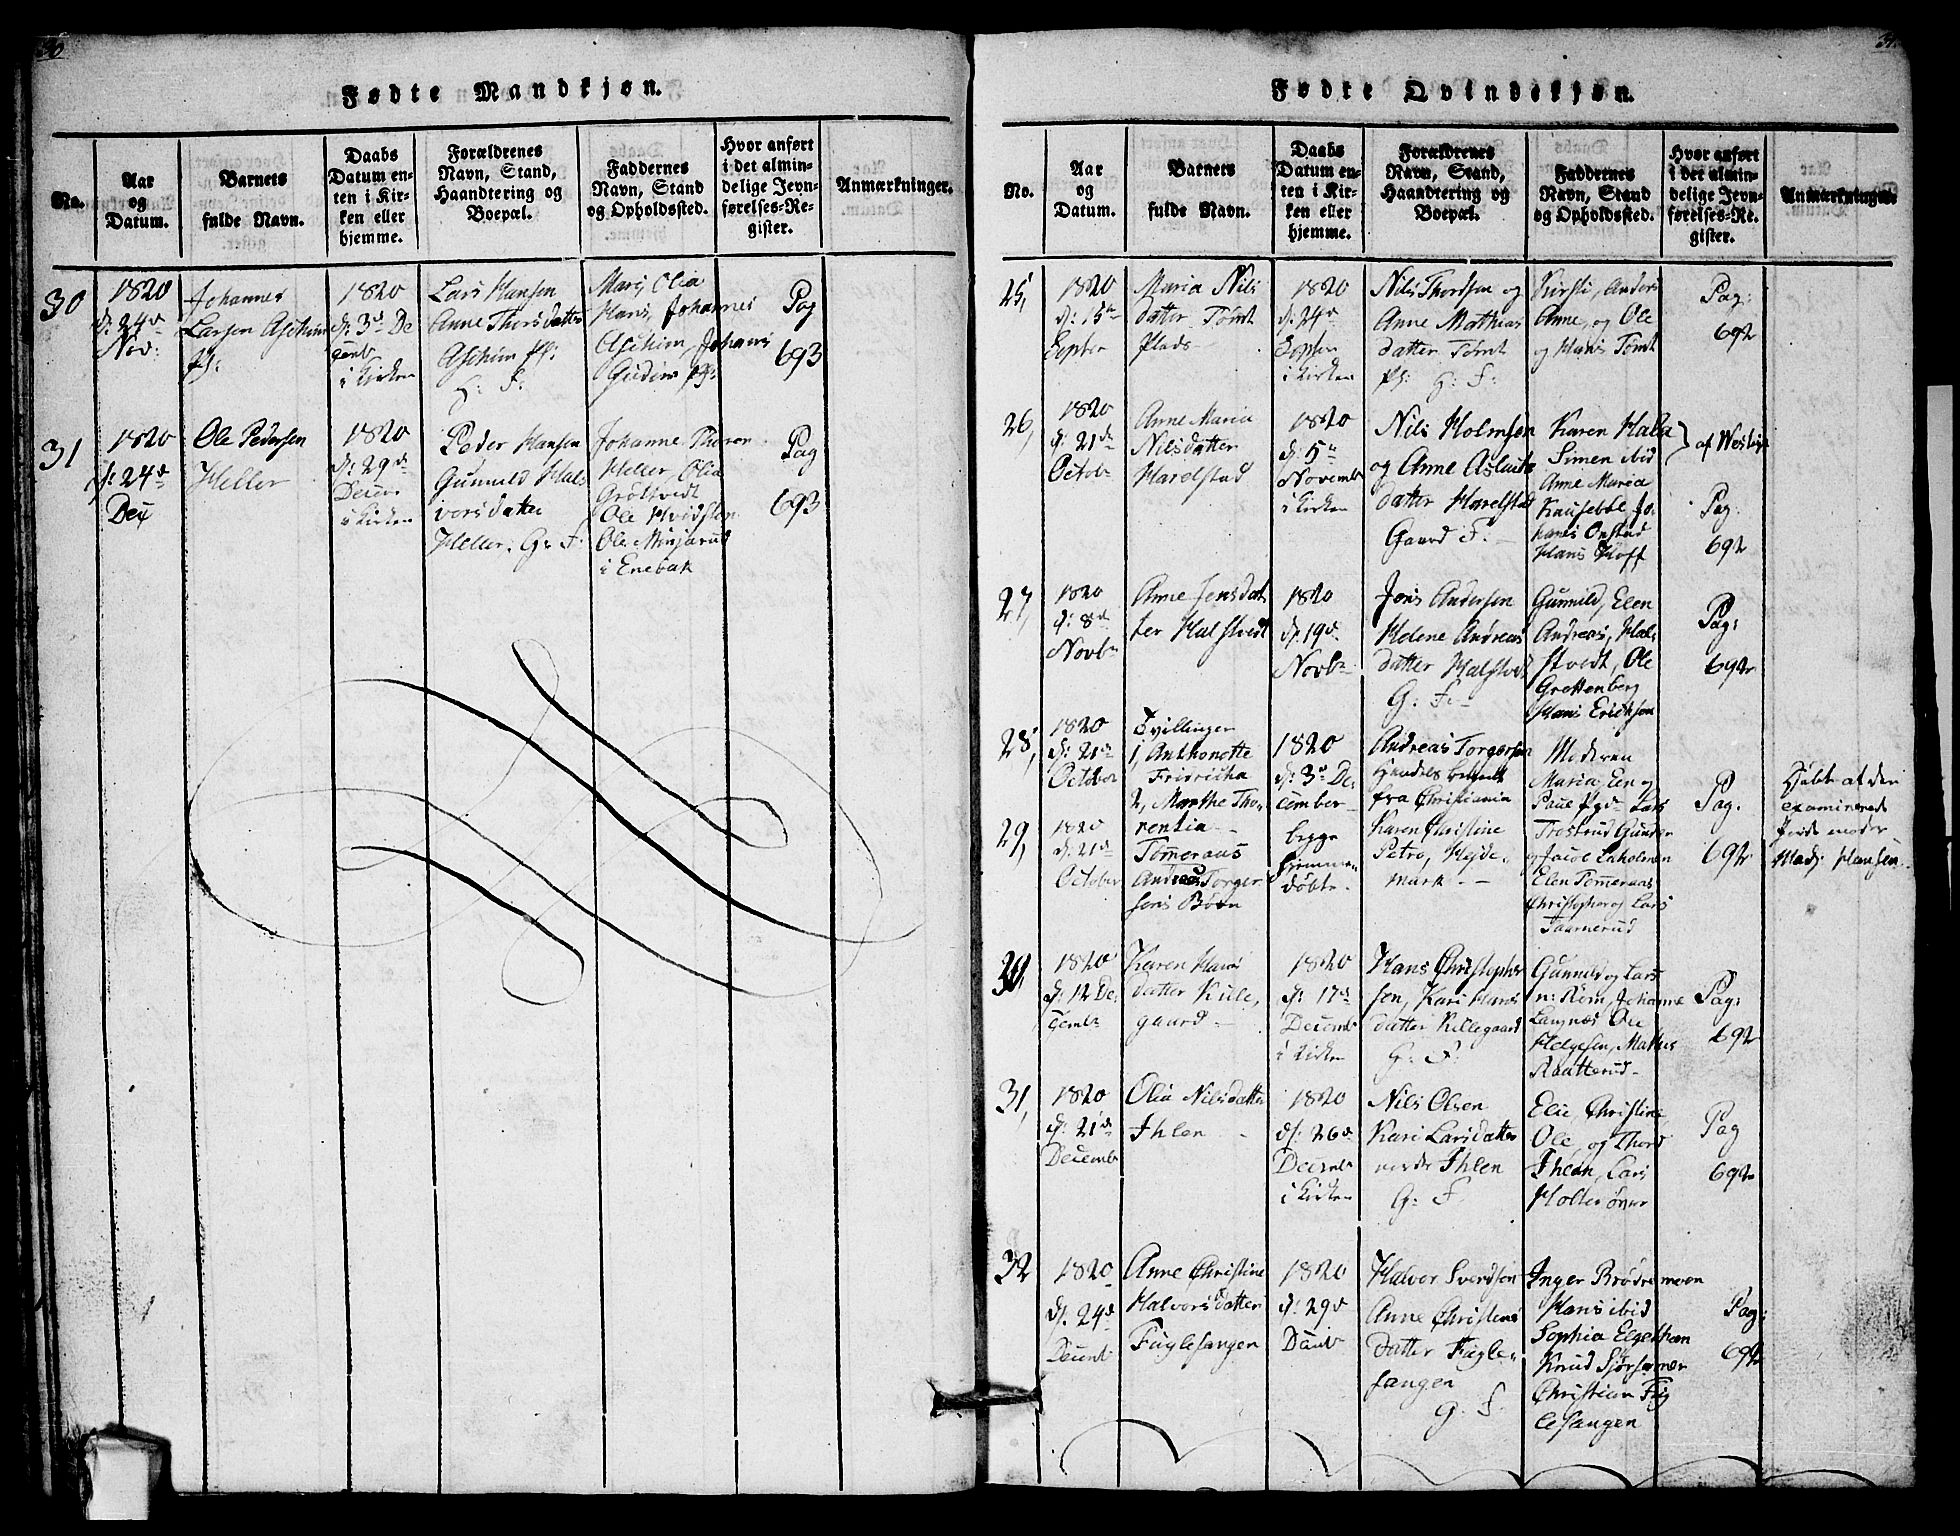 Fødte Mandkjøn.
No.
Aar
og
Datum.
Barnets
fulde Navn.
Daabs
Datum en-
ten i Kir-
ken eller
hjemme.
Forældrenes
Navn, Stand,
Haandtering og
Boepæl.
Faddernes
Navn, Stand
og Opholdssted.
Hvor anført
i det almin-
delige Jevn-
førelses-Re-
gister.
Anmærkninger.
30
1820
d: 24de
Nov:
Johannes
Larsen Aschim
pl:
1820
d: 3de De
cemb
i Kirken
Lars Hansen
Anne Thorsdatter
Aschim pl:
G: F:
Maris Olia
Hans, Johannes
Aschim, Johanis
Gudim pl:
Pag
693
31
1820
d: 24de
Dec
Ole Pedersen
Heller
1820
d: 29de
Decem
i Kirken
Peder Hansen
Gunnild Hal-
vorsdatter
Heller. G: F:
Johanne Thoren
Heller, Olia
Grøstvedt
Ole Hvidsten
Ole Minjarud
i Enebak
Pag
693
Fødte Qvindekjøn.
No.
Aar
og
Datum.
Barnets
fulde Navn.
Daabs
Datum en-
ten i Kir-
ken eller
hjemme.
Forældrenes
Navn, Stand,
Haandtering og
Boepæl.
Faddernes
Navn, Stand
og Opholdssted.
Hvor anført
i det almin-
delige Jevn-
førelses-Re-
gister.
Anmærkninger.
25,
1820
d: 15de
Septbr
Maria Nils
datter Tømt
Plads
1820
d: 24de
Septbr
i Kirken
Nils Thordsen og
Anne Mathias
datter Tømt
pl: G: F:
Kirsti, Anders
Anne, og Ole
og Hans Tømt
Pag:
692
26,
1820
d: 21de
Octob
Anne Maria
Nilsdatter
Harelstad
1820
d: 5te
Novemb
i Kirken
Nils Holmsen
og Anne Aslaks
datter Harelstad
Gaard F.
Karen Hala
Simen ibid
Anne Maria
Knusebbe, Jo-
hanis Onstad
Hans Hoff
Pag:
692
27,
1820
d: 8de
Novbr
Anne Jensdat
ter Halstvedt
1820
d. 19de
Novbr
Jens Andersen
Helene Andreas
datter Halstvedt
G: F:
Gunnild, Elen
Andreas, Hal-
stvedt, Ole
Grottenberg
Hans Ericksen
Pag:
692
28,
1820
d: 21de
October
Tvillinger
1, Anthonette
Fridricha
2, Marthe Tho-
1820
d: 3de De-
cember
Andreas Torgersen
Handels betient
fra Christiania
Moderen
Maria, Een og
Lars
Pag.
Døbt af den
examinerede
Jordemoder
29,
1820
d. 21de
October
rentia
Tømeraas
Andreas Torger
sens Børn
begge
hjemme
døbte.
Karen Christine
Petro, Hejde-
mark
Trostrud Gunder
og Jacob Laholmen
Elen Tømeraas
Christopher og Lars
Taarnerud
692
Mads Hansen
30,
1820
d: 12 De-
cembr
Karen Hans
datter Kille-
gaard
1820
d: 17de
Decemb
i Kirken
Hans Christopher
sen, Kari Hans
datter Killegaard
G: F:
Gunnild og Lars
n: Rom, Johanne
Langnæs Ole
Helgesen, Mathis
Raatterud
Pag:
692
31,
1820
d: 21de
Decemb
Olia Nilsdatter
Ihlen
1820
d: 26de
Decemb
i Kirken
Nils Olsen
Kari Larsdatter
nordr Ihlen
G: F
Elie, Christine
Ole, og Thord
Ihlen, Lars
Holter øvre
Pag
692
32
1820
d. 24de
Decemb
Anne Christine
Halvorsdatter
Fuglesangen
1820
d: 29de
Decemb
Halvor Svendsen
Anne Christens
datter Fugle-
sangen
G. F.
Inger Brødremoen
Hans ibid
Sophia Eegetkaen
Knud
Christian Fug
lesangen
Pag:
692